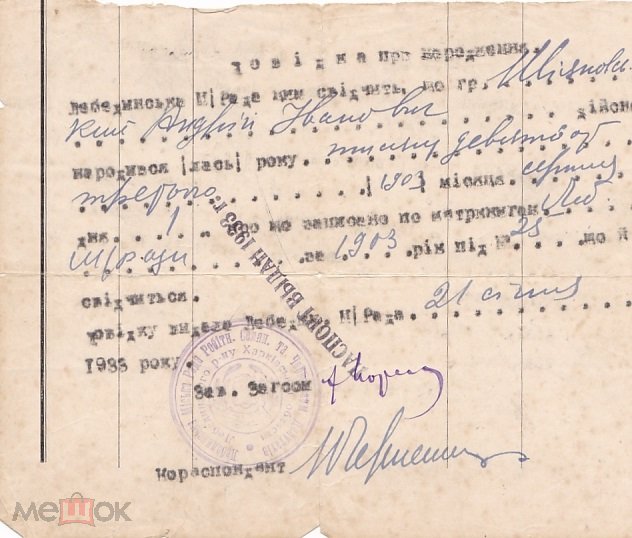 Довідка про народження.
Лебединська М/Рада цим свідчить, що гр. Шізнов-
ский Андрій Іванович дійсно
народився /лась/ року тисяч девятсот
третього /1903/ місяца серпня
дня 1, про що записано по метрикигам Леб.
Міськради за 1903 рік під № 25 що й
свідчиться.
Довідку видала Лебедин. М/Рада 21 січня
1933 року.
Зав. Загсом
Кореспондент
ПАСПОРТ ВЫДАН 1933 г.
мешок